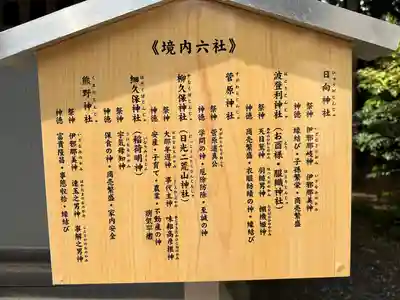 《境内六社》
日向神社
祭神 伊邪那岐神 伊邪那美神
神徳 縁結び・子孫繁栄・商売繁盛
波登利神社
(お酉様・服織神社)
祭神 天日鷲神 羽槌男神 棚機姫神
神徳 商売繁盛・衣服紡績の神・縁結び
菅原神社
祭神 菅原道真公
神徳 学問の神・厄除防除・至誠の神
柳久保神社
(日光二荒山神社)
祭神 大那牟遅神 事代主神 味耜高彦根神
神徳 安産・子育て・農業・不動産の神
病気平癒
細久保神社
(稲荷明神)
祭神 宇気母知神
神徳 保食の神・商売繁盛・家内安全
熊野神社
祭神 伊邪那美神 速玉之男神 事解之男神
神徳 富貴隆昌・事態収拾・縁結び